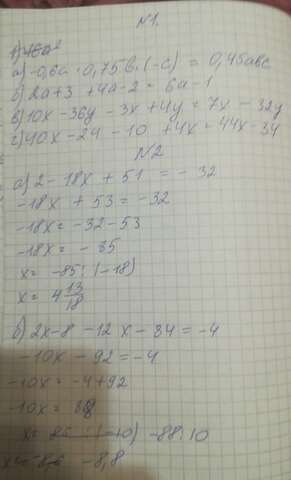 №1.
а) -0,6a · 0,75b · (-c) = 0,45abc
б) 2a+3 +4a-2 = 6a-1
в) 10x - 36y - 3x + 4y = 7x - 32y
г) 40x - 24 - 10 + 4x = 44x - 34
№2
а) 2 - 18x + 51 = -32
-18x + 53 = -32
-18x = -32-53
-18x = -85
x = -85 : (-18)
x = 4 13/18
б) 2x-8 -12x - 84 = -4
-10x - 92 = -4
-10x = -4+92
-10x = 88
-88:10
-8,8